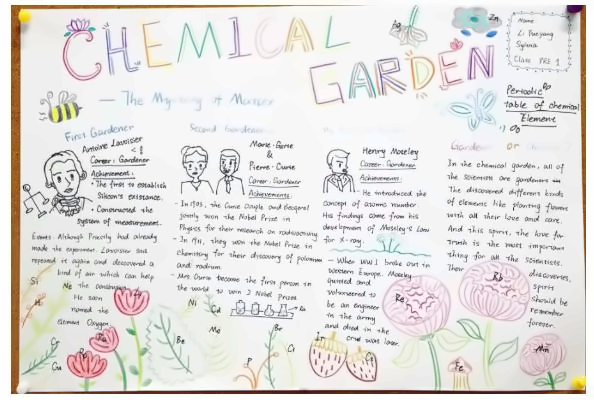 CHEMICAL
GARDEN
Name
Li Fueyang
Sylvia
Class PRE 1
Ag
Zn
— The Mystery of Matter
Periodic
table of chemical
Element
First Gardener
Antoine Lavoisier
Career: Gardener
Achievements:
· The first to establish
Silicon's existance.
· Constructed the
system of measurement.
Events: Although Priestly had already
made the experiment. Lavoisier still
repeated it again and discovered a
kind of air which can help
the combustion
He soon
named the
element Oxygen.
Second Gardener
Marie·Curie
&
Pierre·Curie
Career: Gardener
Achievements:
- In 1903, the Curie Couple and Becqerel
jointly won the Nobel Prize in
Physics for their research on radioactivity
- In 1911, they won the Nobel Prize in
chemistry for their discovery of polonium
and radium.
- Mrs. Curie became the first person in
the world to win 2 Nobel Prizes
Henry Moseley
Career: Gardener
Achievements:
- He introduced the
concept of atoms number
His findings come from his
development of Moseley's Law
for X-ray.
- When WW1 broke out in
western Europe. Moseley
quited and
volunteered to
be an engineer
in the army
and died in the
war later.
Gardener
or
In the chemical garden, all of
the scientists are gardeners
The discovered different kinds
of elements like planting flowers
with all their love and care.
And this spirit, the love for
truth is the most important
thing for all the scientists.
Their discoveries,
spirit
should be
remember
forever.
Si
H
Ne
Cr
Cu
Be
Ni
Cd
Mo
P
Br
Cl
In
Cs
Re
Fe
Rb
Mn